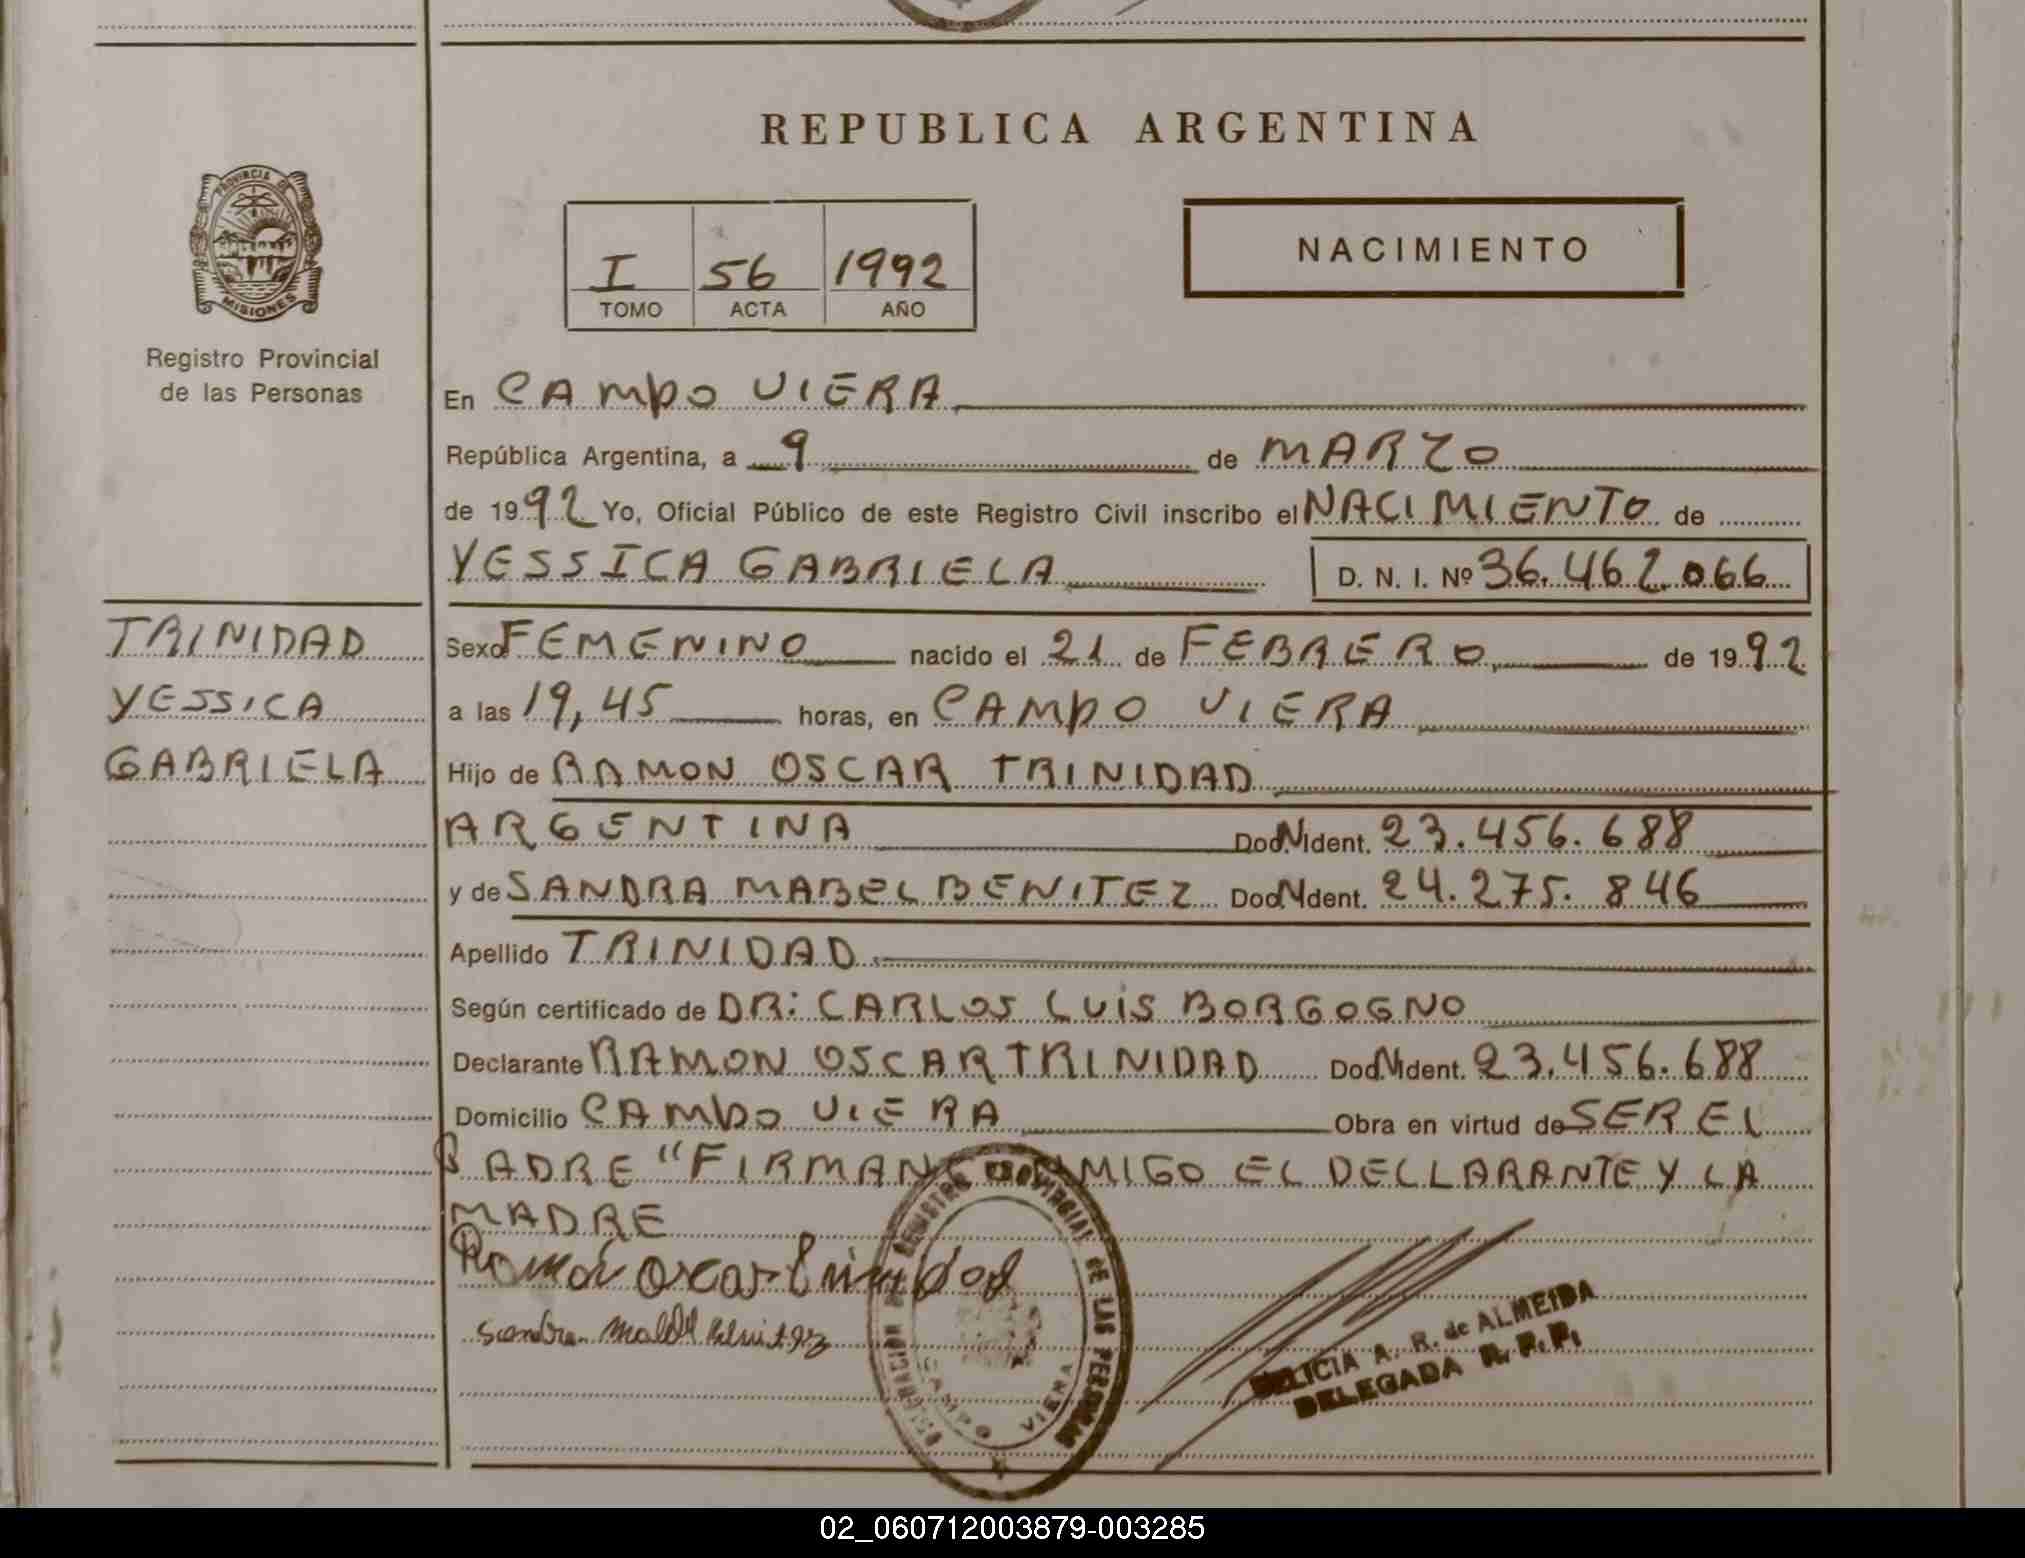 REPUBLICA ARGENTINA
PROVINCIA DE
MISIONES
Registro Provincial
de las Personas
I 56 1992
TOMO ACTA AÑO
NACIMIENTO
En CAMPO VIERA
República Argentina, a 9 de MARZO
de 1992 Yo, Oficial Público de este Registro Civil inscribo el NACIMIENTO de
YESSICA GABRIELA D. N. I. Nº 36.462.066
TRINIDAD
YESSICA
GABRIELA
Sexo FEMENINO nacido el 21 de FEBRERO de 1992
a las 19,45 horas, en CAMPO VIERA
Hijo de RAMON OSCAR TRINIDAD
ARGENTINA Doc.N.Ident. 23.456.688
y de SANDRA MABEL BENITEZ Doc.N.Ident. 24.275.846
Apellido TRINIDAD
Según certificado de DR: CARLOS LUIS BORGOGNO
Declarante RAMON OSCAR TRINIDAD Doc.N.Ident. 23.456.688
Domicilio CAMPO VIERA Obra en virtud de SER EL
PADRE "FIRMAN CONMIGO EL DECLARANTE Y LA
MADRE
Ramón Oscar Trinidad
Sandra Mabel Benitez
DELEGACION DE REGISTRO PROVINCIAL DE LAS PERSONAS
CAMPO VIERA
DELICIA A. R. de ALMEIDA
DELEGADA R. P. P.
02_060712003879-003285